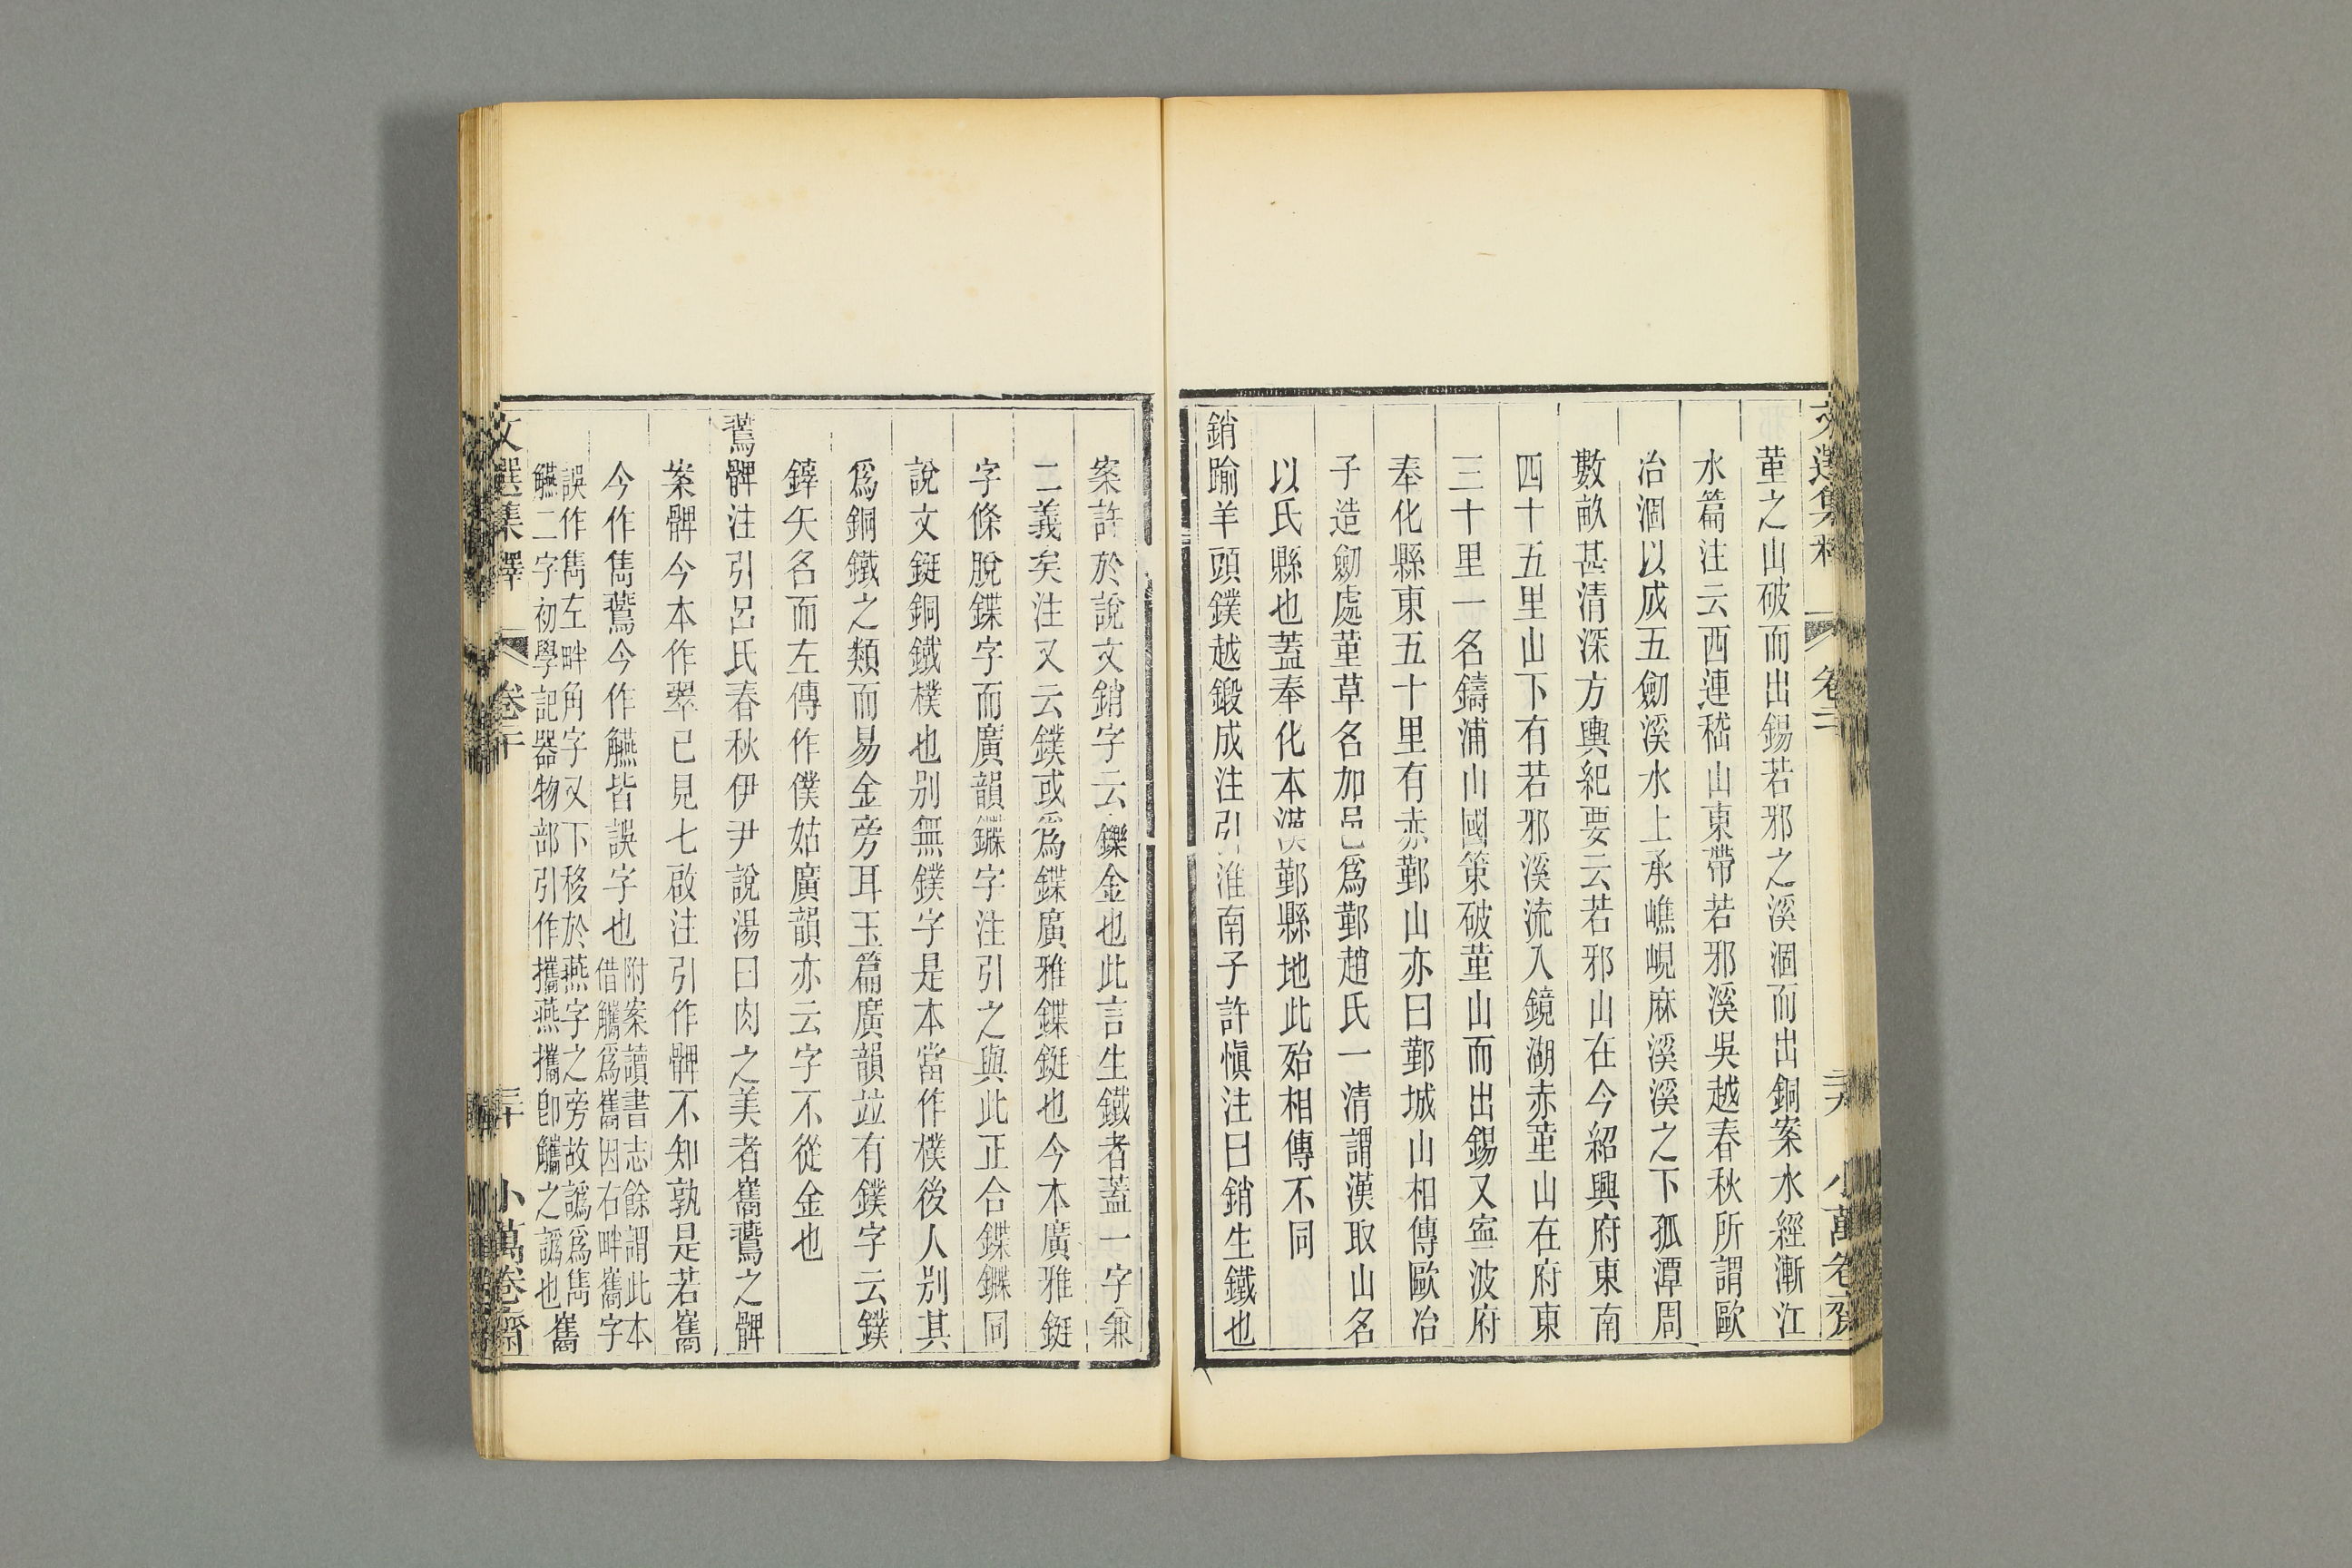 堇之山破而出錫若邪之溪涸而出銅案水經漸江
水篇注云西連嵇山東帶若邪溪吳越春秋所謂歐
冶涸以成五劒溪水上承嶕峴麻溪溪之下孤潭周
數畝甚清深方輿紀要云若邪山在今紹興府東南
四十五里山下有若邪溪流入鏡湖赤堇山在府東
三十里一名鑄浦山國策破堇山而出錫又寍波府
奉化縣東五十里有赤鄞山亦曰鄞城山相傳歐冶
子造劒處堇草名加邑爲鄞趙氏一清謂漢取山名
以氏縣也蓋奉化本漢鄞縣地此殆相傳不同
銷踰羊頭鏷越鍛成注引淮南子許愼注曰銷生鐵也
案許於說文銷字云鑠金也此言生鐵者蓋一字兼
二義矣注又云鏷或爲鍱廣雅鍱鋌也今本廣雅鋌
字條脫鍱字而廣韻鏶字注引之與此正合鍱鏶同
說文鋌銅鐵樸也別無鏷字是本當作樸後人別其
爲銅鐵之類而易金旁耳玉篇廣韻竝有鏷字云鏷
鋍矢名而左傳作僕姑廣韻亦云字不從金也
鷰髀注引呂氏春秋伊尹說湯曰肉之美者巂鷰之髀
案髀今本作翠已見七啟注引作髀不知孰是若巂
今作雋鷰今作觾皆誤字也
附案讀書志餘謂此本
借觿爲巂因右畔巂字
誤作雋左畔角字又下移於燕字之旁故譌爲雋
觾二字初學記器物部引作攜燕攜卽觿之譌也
巂
文選集釋
卷二十
三十
小萬卷齋